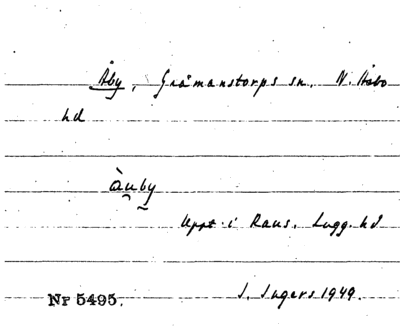 Åby, Gråmanstorps sn, N. Åsbo
hd
àu̯by̰
Uppt. i Raus, Lugg. hd
I. Ingers 1949.
Nr 5495.